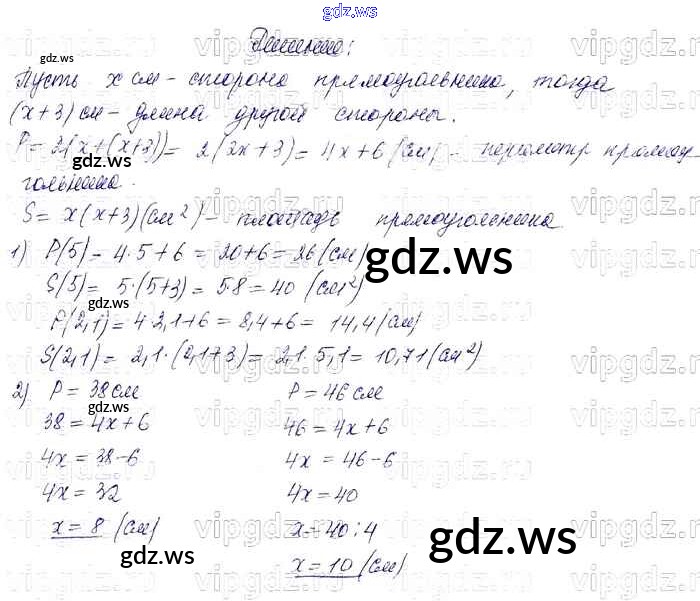 gdz.ws
Решение:
Пусть x см - сторона прямоугольника, тогда
(x+3) см - длина другой стороны.
P = 2(x+(x+3)) = 2(2x+3) = 4x+6 (см) - периметр прямоу
гольника.
S = x(x+3) (см²) - площадь прямоугольника.
1) P(5) = 4·5+6 = 20+6 = 26 (см)
S(5) = 5·(5+3) = 5·8 = 40 (см²)
P(2,1) = 4·2,1+6 = 8,4+6 = 14,4 (см)
S(2,1) = 2,1·(2,1+3) = 2,1·5,1 = 10,71 (см²)
2) P = 38 см P = 46 см
38 = 4x+6 46 = 4x+6
4x = 38-6 4x = 46-6
4x = 32 4x = 40
x = 8 (см) x = 40:4
x = 10 (см)
gdz.ws
gdz.ws
gdz.ws
gdz.ws
gdz.ws
gdz.ws
gdz.ws
gdz.ws
vipgdz.ru